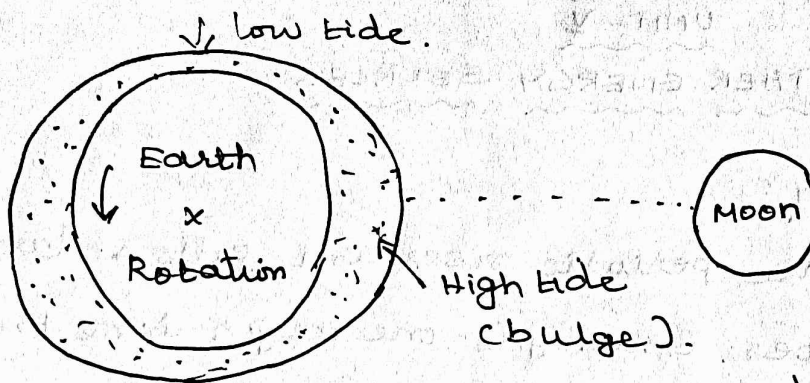 ↓ low tide.
Earth
x
Rotation
Moon
High tide
(bulge).